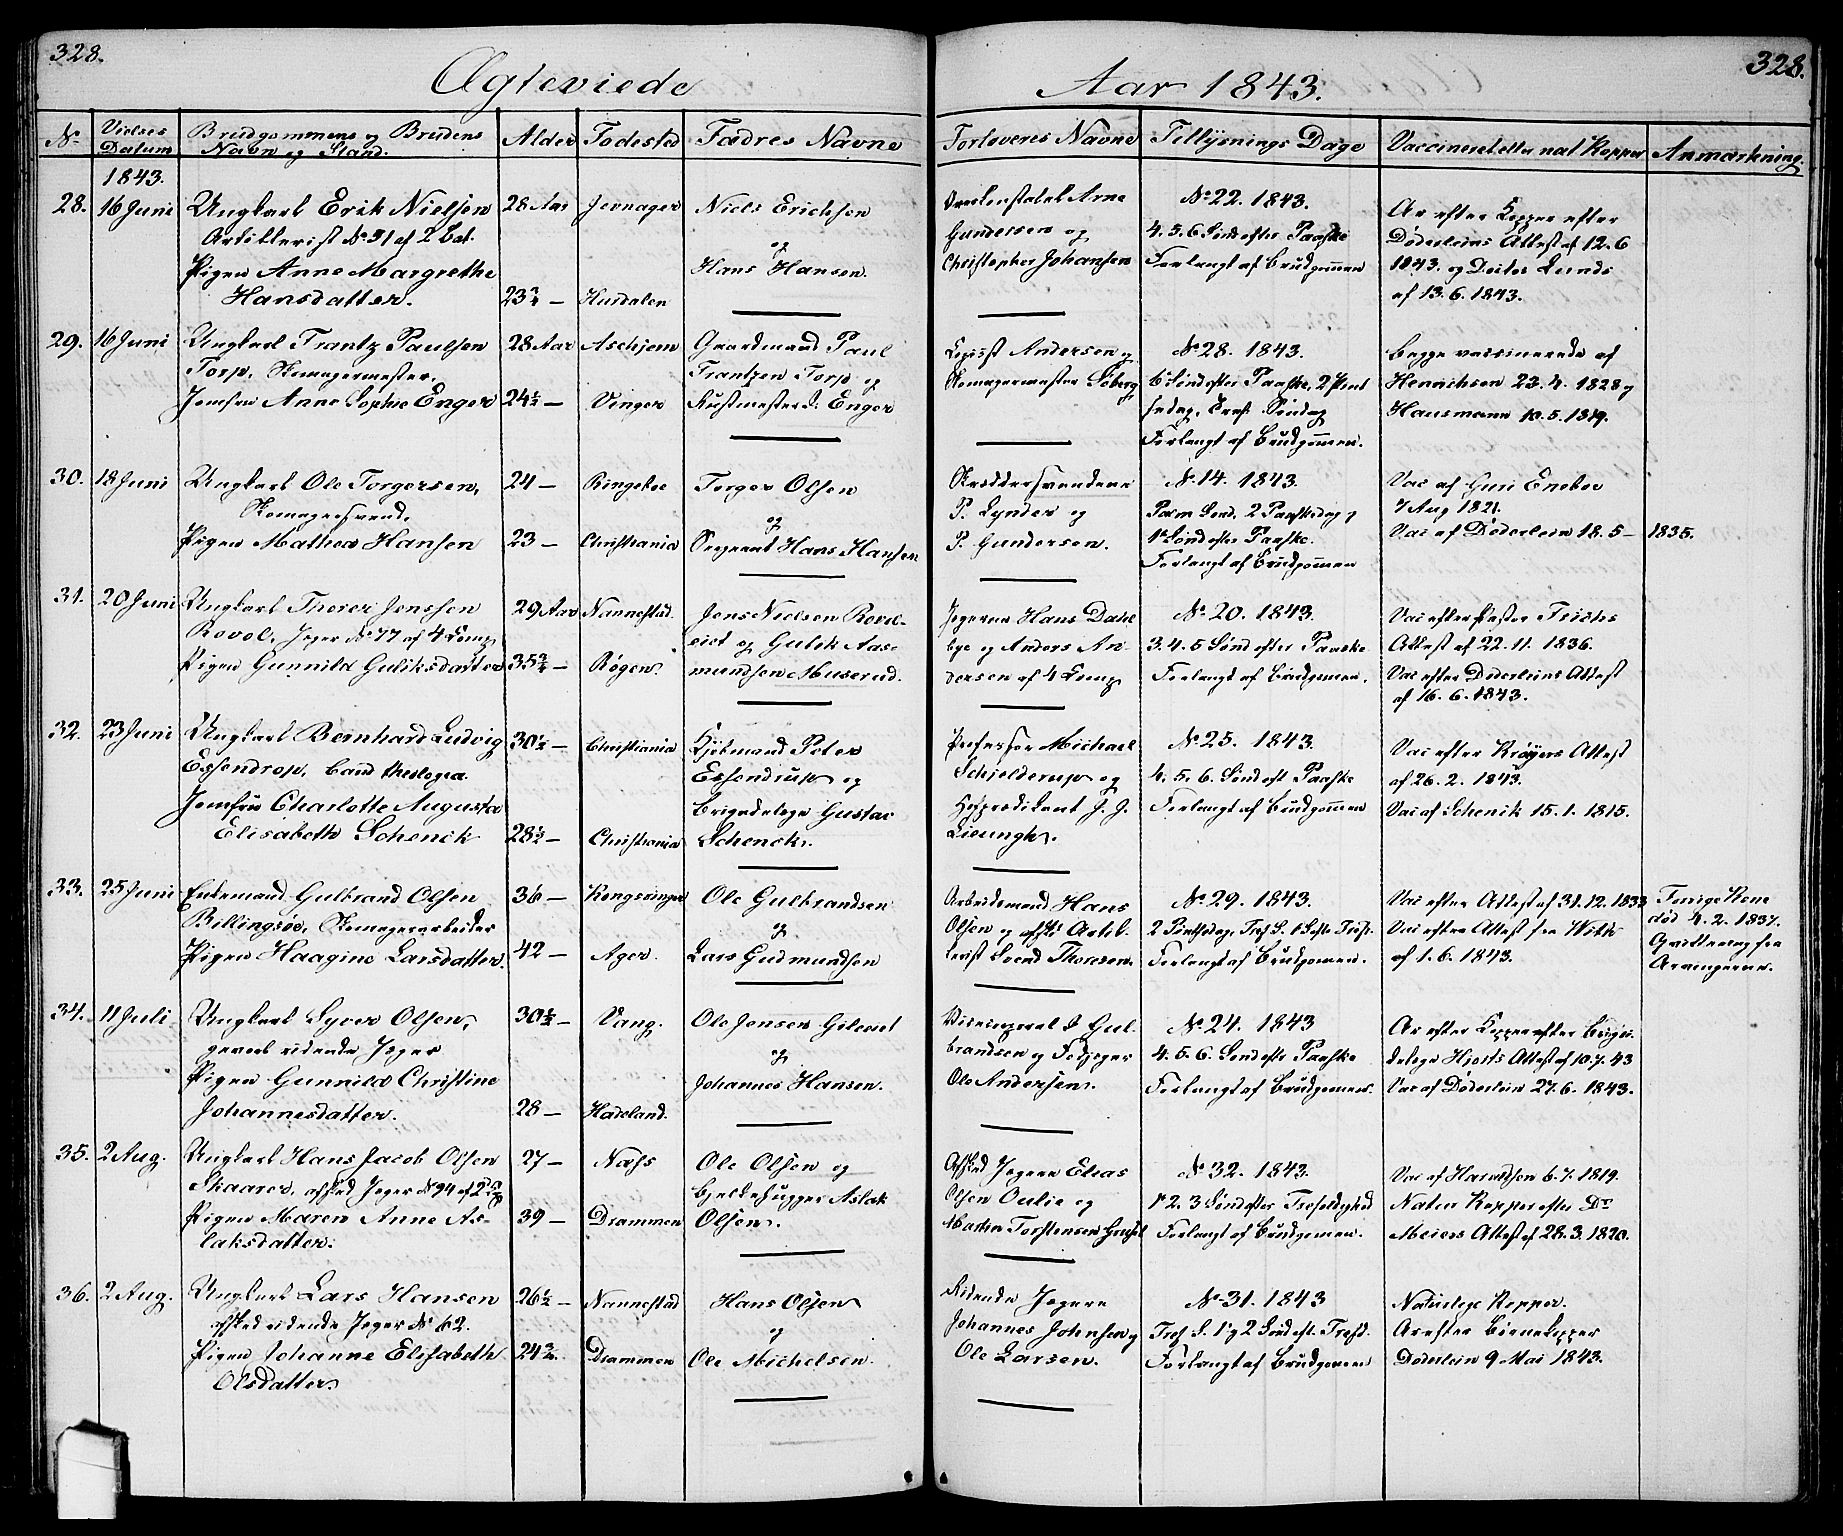 328.
Ægteviede
Aar 1843.
328.
No
Vielses Datum
Brudgommens og Brudens Navn og Stand.
Alder
Fødested
Fædres Navne
Forloveres Navne
Tillysnings Dage
Vaccineret eller nat Kopper
Anmærkning.
1843.
28.
16 Juni
Ungkarl Erik Nielsen
Artillerist No 31 af 2 Bat.
Pigen Anne Margrethe
Hansdatter.
28 Aar
23 3/4 —
Jevnager
Hurdalen
Niels Erichsen
og
Hans Hansen.
Arne
Gundersen og
Christopher Johansen
No 22. 1843.
4. 5. 6 Sønd efter Paaske
Forlangt af Brudgommen
Ar efter Kopper efter
Døderleins Attest af 12. 6
1843. og Doctor Lunds
af 13. 6. 1843.
29.
16 Juni
Ungkarl Frantz Paulsen
Torp, Skomagermester.
Jomfru Anne Sophie Enger
28 Aar
24 1/2 —
Aschjem
Vinger
Gaardmand Paul
Frantzen Torp og
Rustmester Enger
Andersen og
Skomagermester Soberg
No 28. 1843.
6 Sønd efter Paaske, 2 Pint
sedag, Tref Søndag
Forlangt af Brudgommen.
Begge vaccinerede af
Henrichsen 23. 4. 1828 og
Hausmann 10. 5. 1819.
30.
18 Juni
Ungkarl Ole Torgersen,
Skomagersvend.
Pigen Mathea Hansen
24 —
23 —
Ringeboe
Christiania
Torger Olsen
og
Sergeant Hans Hansen
Skræddersvendene
P. Lynder og
P. Gundersen.
No 14. 1843.
Palm Sønd. 2 Paaskedag og
1 Sønd efter Paaske.
Forlangt af Brudgommen
Vac af Guri Eneboe
7 Aug 1821.
Vac af Døderlein 18. 5 — 1835.
31.
20 Juni
Ungkarl Thorer Jenssen
Rovol, Jeger No 77 af 4 Comp
Pigen Gunnild Guliksdatter
29 Aar
35 3/4 —
Nannestad.
Røgen.
Jens Nielsen Rovol-
eiet og Gulik Aas-
mundsen Muserud.
Jegerne Hans Dahl
bye og Anders An-
dersen af 4 Comp
No 20. 1843.
3. 4. 5 Sønd efter Paaske
Forlangt af Brudgommen.
Vac efter Frichs
Attest af 22. 11. 1836.
Vac efter Døderleins Attest
af 16. 6. 1843.
32.
23 Juni
Ungkarl Bernhard Ludvig
Essendrop, Cand theologia.
Jomfru Charlotte Augusta
Elisabeth Schenck
30 1/2 —
28 1/2 —
Christiania
Christiania
Kjøbmand Peter
Essendrup og
Brigadelege Gustav
Schenck.
Professor Michael
Schjelderup og
J. J.
Lieungh.
No 25. 1843.
4. 5. 6. Sønd eft Paaske
Forlangt af Brudgommen
Vac efter Krøyers Attest
af 26. 2. 1843.
Vac af Schenck 15. 1. 1815.
33.
25 Juni
Enkemand Gulbrand Olsen
Billingsøe, Skomagerarbeider
Pigen Haagine Larsdatter.
36 —
42 —
Kongsvinger
Ager.
Ole Gulbrandsen
og
Lars Gudmundsen
Arbeidsmand Hans
Olsen og afsk: Artil-
lerist Svend Thoresen.
No 29. 1843.
2 Pintsedag, Tref S. 1 S efte Tref.
Forlangt af Brudgommen.
Vac efter Attest af 31. 12. 1833
Vac efter Attest fra With
af 1. 6. 1843.
Forrige Kone
død 4. 2. 1837.
Qvittering fra
Arvingerne.
34.
11 Juli
Ungkarl Syver Olsen,
gevorb ridende Jeger
Pigen Gunnild Christine
Johannesdatter.
30 1/2 —
28 —
Vang.
Hadeland.
Ole Jensen
og
Johannes Hansen.
Gul-
brandsen og Fodjeger
Ole Andersen.
No 24. 1843
4. 5. 6. Sønd efte Paaske
Forlangt af Brudgommen.
Ar efter Kopper efter Briga-
delege Hjorts Attest af 10. 7. 43
Vac af Døderlein 27. 6. 1843.
35.
2 Aug.
Ungkarl Hans Jacob Olsen
Skaarer, afsked Jeger No 94 af 2 Cp
Pigen Maren Anne As-
laksdatter.
27 —
39 —
Næss
Drammen
Ole Olsen og
Bjelkehugger Aslak
Olsen.
Afsked Jegere Elias
Olsen Oulie og
Martin Torstensen
No 32. 1843.
1 2. 3 Sønd efter Trefoldighed
Forlangt af Brudgommen.
Vac af Harveltsen 6. 7. 1819.
Naturl Kopper efter Dr
Meiers Attest af 28. 3. 1820.
36.
2 Aug.
Ungkarl Lars Hansen
afsked ridende Jeger No 62.
Pigen Johanne Elisabeth
Olsdatter.
26 1/2 —
24 3/4.
Nannestad
Drammen
Hans Olsen
og
Ole Michelsen.
Ridende Jegere
Johannes Johnsen og
Ole Larsen.
No 31. 1843
Tref S. 1 og 2 Sønd eft. Trefd.
Forlangt af Brudgommen
Naturlige Kopper.
Ar efter Børnekopper
Døderlein 9 Mai 1843.